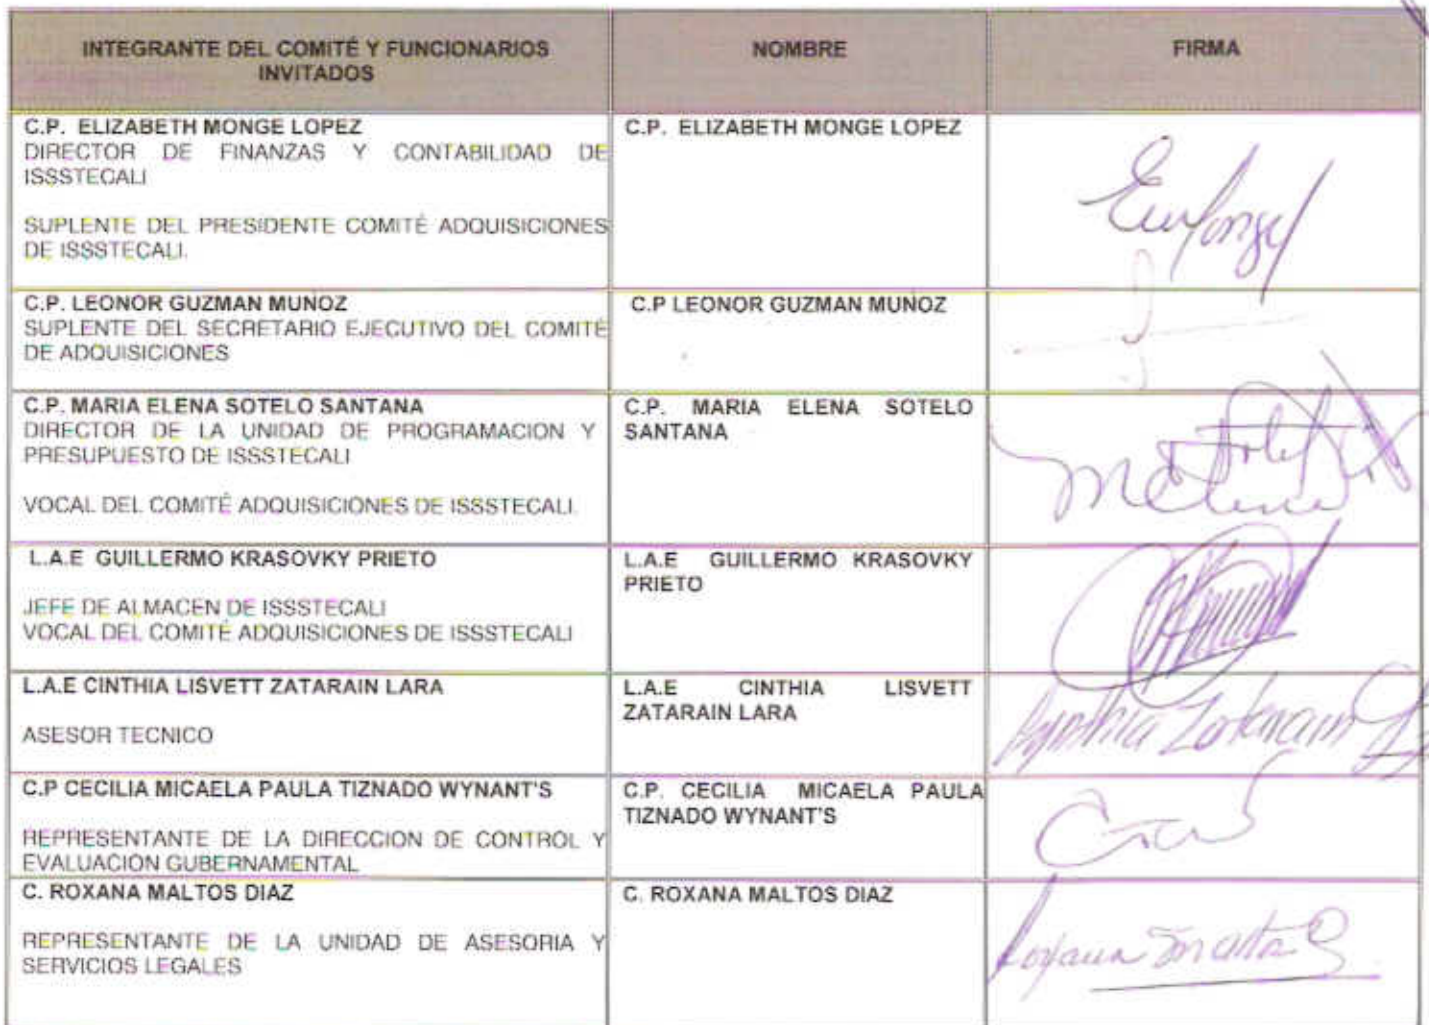 INTEGRANTE DEL COMITÉ Y FUNCIONARIOS
INVITADOS
NOMBRE
FIRMA
C.P. ELIZABETH MONGE LOPEZ
DIRECTOR DE FINANZAS Y CONTABILIDAD DE
ISSSTECALI
SUPLENTE DEL PRESIDENTE COMITÉ ADQUISICIONES
DE ISSSTECALI.
C.P. ELIZABETH MONGE LOPEZ
C.P. LEONOR GUZMAN MUÑOZ
SUPLENTE DEL SECRETARIO EJECUTIVO DEL COMITÉ
DE ADQUISICIONES
C.P LEONOR GUZMAN MUÑOZ
C.P. MARIA ELENA SOTELO SANTANA
DIRECTOR DE LA UNIDAD DE PROGRAMACION Y
PRESUPUESTO DE ISSSTECALI
VOCAL DEL COMITÉ ADQUISICIONES DE ISSSTECALI.
C.P. MARIA ELENA SOTELO
SANTANA
L.A.E GUILLERMO KRASOVKY PRIETO
JEFE DE ALMACEN DE ISSSTECALI
VOCAL DEL COMITÉ ADQUISICIONES DE ISSSTECALI
L.A.E GUILLERMO KRASOVKY
PRIETO
L.A.E CINTHIA LISVETT ZATARAIN LARA
ASESOR TECNICO
L.A.E CINTHIA LISVETT
ZATARAIN LARA
C.P CECILIA MICAELA PAULA TIZNADO WYNANT'S
REPRESENTANTE DE LA DIRECCION DE CONTROL Y
EVALUACION GUBERNAMENTAL
C.P. CECILIA MICAELA PAULA
TIZNADO WYNANT'S
C. ROXANA MALTOS DIAZ
REPRESENTANTE DE LA UNIDAD DE ASESORIA Y
SERVICIOS LEGALES
C. ROXANA MALTOS DIAZ